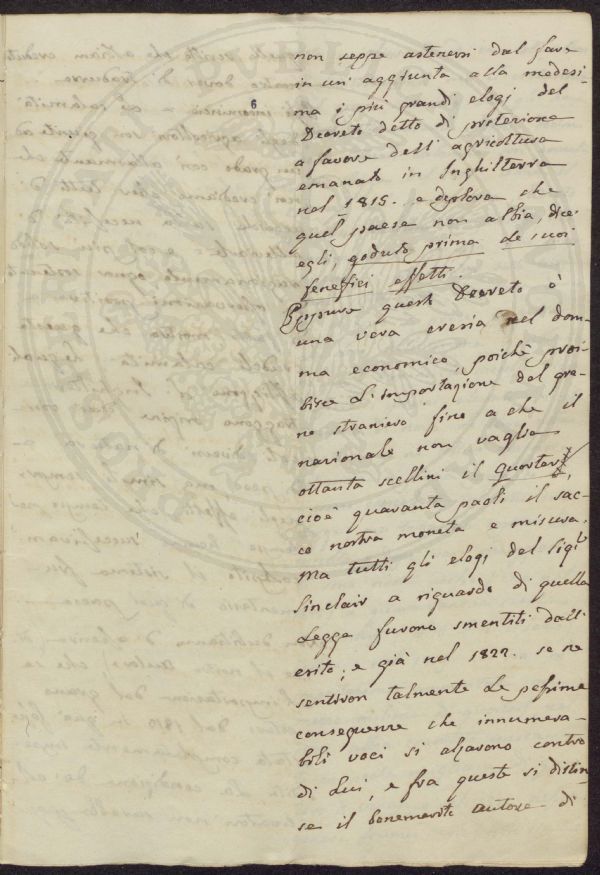 non seppe astenersi dal fare
in un' aggiunta alla medesi-
6
ma i più grandi elogi del
Decreto detto di protezione
a favore dell' agricoltura
emanato in Inghilterra
nel 1815. e deplora che
quel paese non abbia, dice
egli, goduto prima de suoi
benefici effetti.
Eppure questo Decreto è
una vera eresia nel dom-
ma economico, poichè proi-
bisce l'importazione del gra-
no straniero fino a che il
nazionale non vaglia
ottanta scellini il quarter,
cioè quaranta paoli il sac-
co nostra moneta e misura.
Ma tutti gli elogi del Sigr
Sinclair a riguardo di quella
Legge furono smentiti dall'
esito; e già nel 1822. se ne
sentiron talmente le pessime
conseguenze che innumera-
bili voci si alzarono contro
di Lui, e fra queste si distin-
se il benemerito autore di